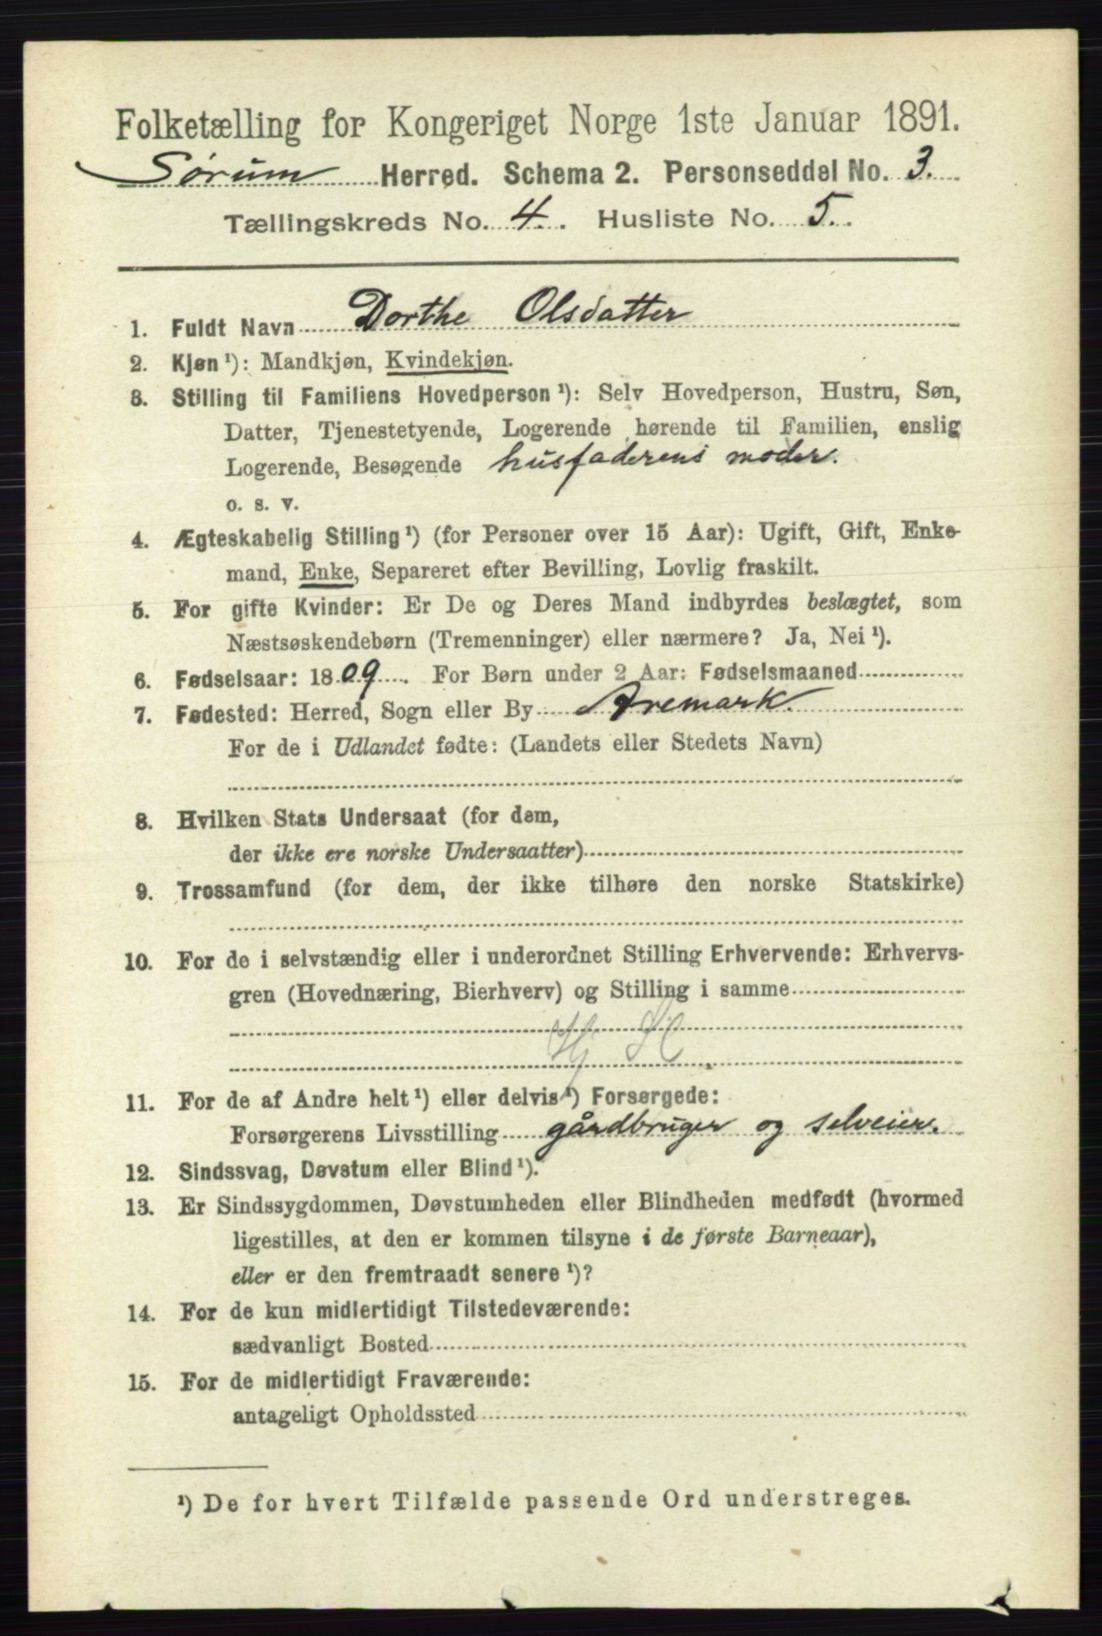 Folketælling for Kongeriget Norge 1ste Januar 1891.
Sørum Herred. Schema 2. Personseddel No. 3.
Tællingskreds No. 4. Husliste No. 5.
1. Fuldt Navn Dorthe Olsdatter
2. Kjøn ¹): Mandkjøn, Kvindekjøn.
3. Stilling til Familiens Hovedperson ¹): Selv Hovedperson, Hustru, Søn,
Datter, Tjenestetyende, Logerende hørende til Familien, enslig
Logerende, Besøgende husfaderens moder.
o. s. v.
4. Ægteskabelig Stilling ¹) (for Personer over 15 Aar): Ugift, Gift, Enke-
mand, Enke, Separeret efter Bevilling, Lovlig fraskilt.
5. For gifte Kvinder: Er De og Deres Mand indbyrdes beslægtet, som
Næstsøskendebørn (Tremenninger) eller nærmere? Ja, Nei ¹).
6. Fødselsaar: 1809. For Børn under 2 Aar: Fødselsmaaned
7. Fødested: Herred, Sogn eller By Aremark.
For de i Udlandet fødte: (Landets eller Stedets Navn)
8. Hvilken Stats Undersaat (for dem,
der ikke ere norske Undersaatter)
9. Trossamfund (for dem, der ikke tilhøre den norske Statskirke)
10. For de i selvstændig eller i underordnet Stilling Erhvervende: Erhvervs-
gren (Hovednæring, Bierhverv) og Stilling i samme
11. For de af Andre helt ¹) eller delvis ¹) Forsørgede:
Forsørgerens Livsstilling gårdbruger og selveier.
12. Sindssvag, Døvstum eller Blind ¹).
13. Er Sindssygdommen, Døvstumheden eller Blindheden medfødt (hvormed
ligestilles, at den er kommen tilsyne i de første Barneaar),
eller er den fremtraadt senere ¹)?
14. For de kun midlertidigt Tilstedeværende:
sædvanligt Bosted
15. For de midlertidigt Fraværende:
antageligt Opholdssted
¹) De for hvert Tilfælde passende Ord understreges.